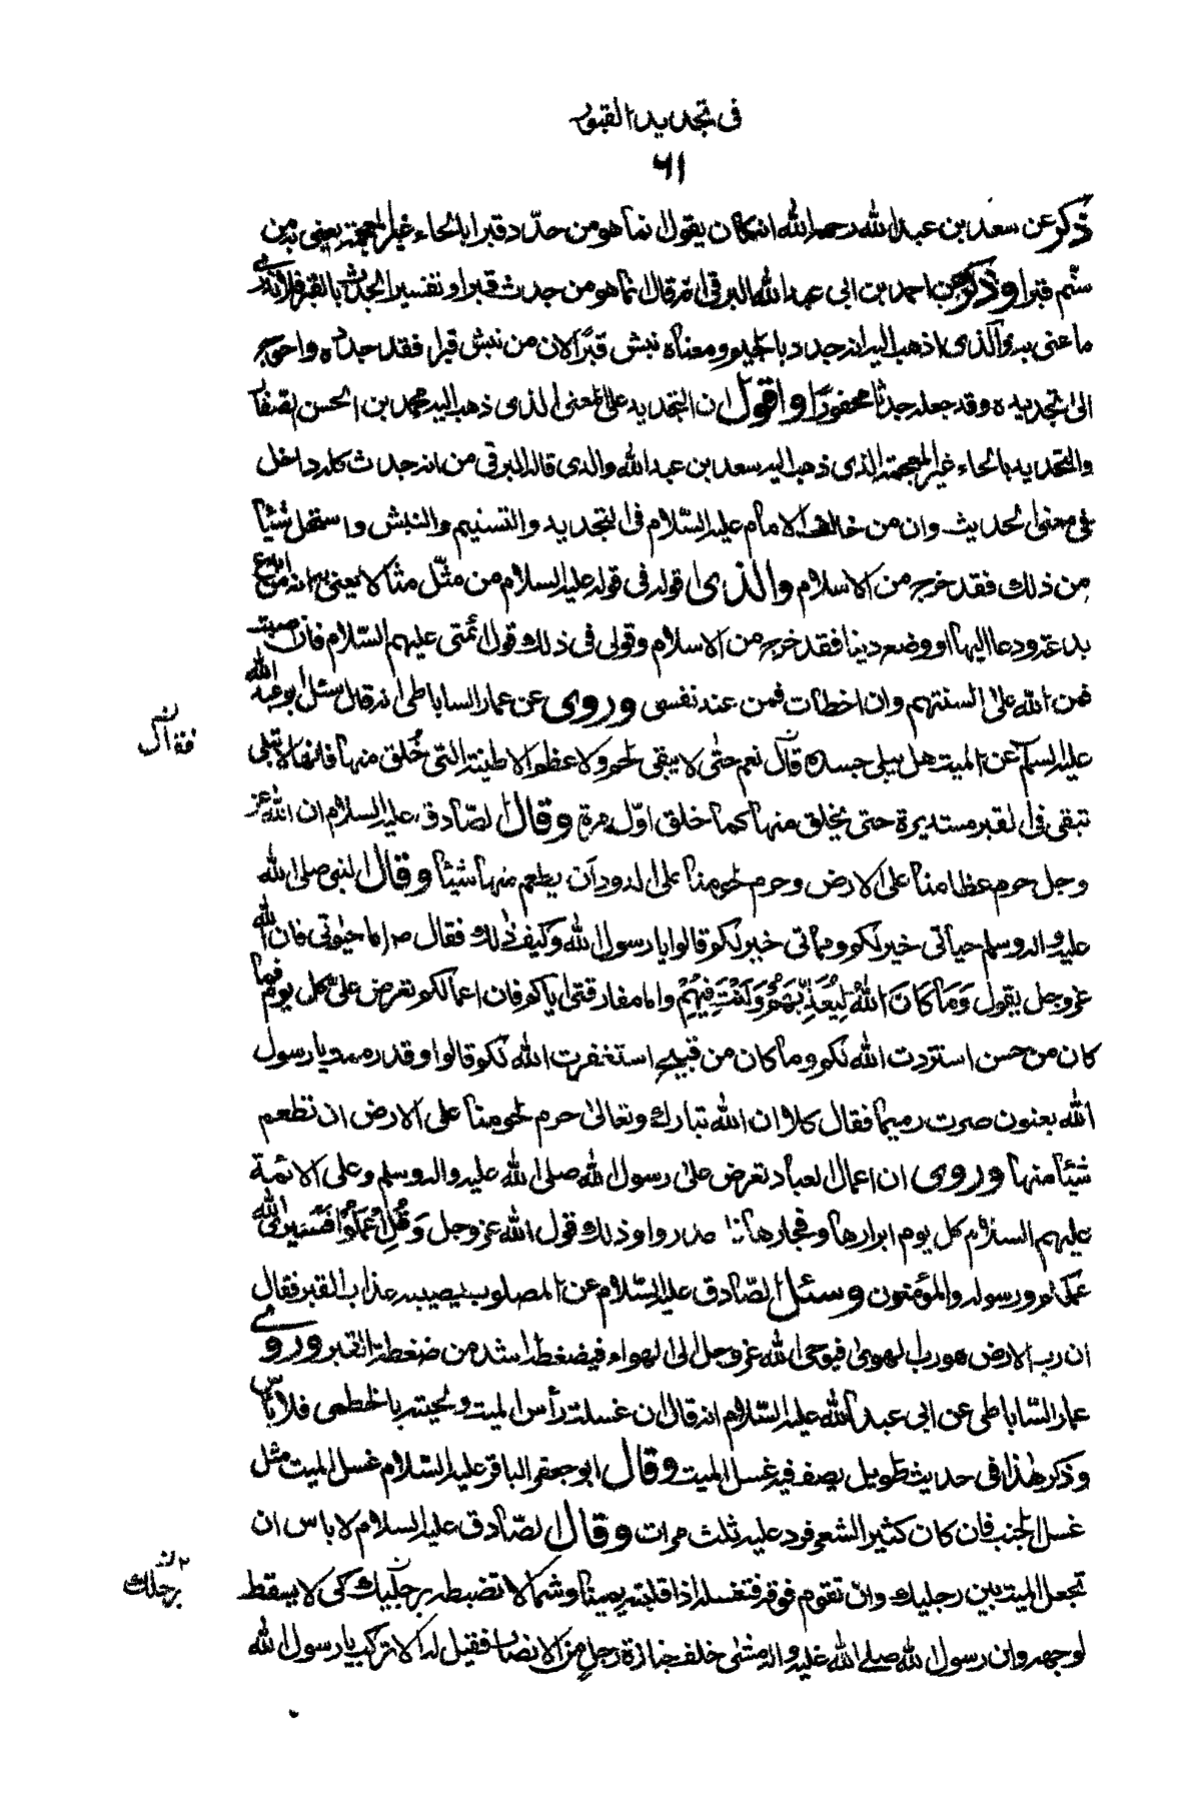 فى تجديد القبور
٦١
ذكر عن سعد بن عبد الله رحمه الله انه كان يقول انما هو من حدّد قبرا بالحاء غير المعجمة يعنى به من
سنّم قبرا وذكر عن احمد بن ابى عبد الله البرقى انه قال انما هو من جدث قبرا وتفسير الجدث بالقبر فلا ندرى
ما عنى به والذى اذهب اليه انه جدد بالجيم ومعناه نبش قبرًا لان من نبش قبرا فقد جدده واحوج
الى تجديده وقد جعله جدثا محفورًا واقول ان التجديد على المعنى الذى ذهب اليه محمد بن الحسن الصفار
والتحديد بالحاء غير المعجمة الذى ذهب اليه سعد بن عبد الله والذى قاله البرقى من انه جدث كله داخل
فى معنى الحديث وان من خالف الامام عليه السّلام فى التجديد والتسنيم والنبش واستحل شيئا
من ذلك فقد خرج من الاسلام والذى اقوله فى قوله عليه السلام من مثّل مثالا يعنى به انه من ابدع
بدعة ودعا اليها او وضع دينا فقد خرج من الاسلام وقولى فى ذلك قول ائمتى عليهم السّلام فان اصبت
فمن الله على السنتهم وان اخطات فمن عند نفسى وروى عن عمار الساباطى انه قال سئل ابو عبد الله
عليه السلم عن الميت هل يبلى جسده قال نعم حتى لا يبقى لحم ولا عظم الا طينته التى خُلق منها فانها لا تبلى
فقال ن
تبقى فى القبر مستديرة حتى يخلق منها كما خلق اوّل مرة وقال الصّادق عليه السلام ان الله عز
وجل حرم عظامنا على الارض وحرم لحومنا على الدود ان يطعم منها شيئا وقال النبى صلى الله
عليه واله وسلم حياتى خير لكم ومماتى خير لكم قالوا يا رسول الله وكيف ذلك فقال ص اما حيوتى فان الله
عز وجل يقول وَمَا كَانَ اللهُ لِيُعَذِّبَهُمْ وَاَنْتَ فِيْهِمْ واما مفارقتى اياكم فان اعمالكم تعرض علىّ كل يوم فما
كان من حسن استزدت الله لكم وما كان من قبيح استغفرت الله لكم قالوا وقد رممت يا رسول
الله يعنون صرت رميما فقال كلا ان الله تبارك وتعالى حرم لحومنا على الارض ان تطعم
شيئا منها وروى ان اعمال العباد تعرض على رسول الله صلى الله عليه واله وسلم وعلى الائمة
عليهم السلام كل يوم ابرارها وفجارها فاحذروا وذلك قول الله عز وجل وَقُلِ اعْمَلُوْا فَسَيَرَى الله
عملكم ورسوله والمؤمنون وسئل الصّادق عليه السّلام عن المصلوب يصيبه عذاب القبر فقال
ان رب الارض هو رب الهوى فيوحى الله عز وجل الى الهواء فيضغطه اشد من ضغطة القبر وروى
عمار السّاباطى عن ابى عبد الله عليه السّلام انه قال ان غسلت رأس الميت ولحيته بالخطمى فلا باس
وذكر هذا فى حديث طويل يصف فيه غسل الميت وقال ابو جعفر الباقر عليه السّلام غسل الميت مثل
غسل الجنب فان كان كثير الشعر فرد عليه ثلث مرات وقال الصّادق عليه السلام لا باس ان
تجعل الميت بين رجليك وان تقوم فوقه فتغسله اذا قلبته يمينا وشمالا تضبطه برجليك كى لا يسقط
برجلك ن
لوجهه وان رسول الله صلے الله عليه واله مشى خلف جنازة رجل من الانصار فقيل له الا تركب يا رسول الله